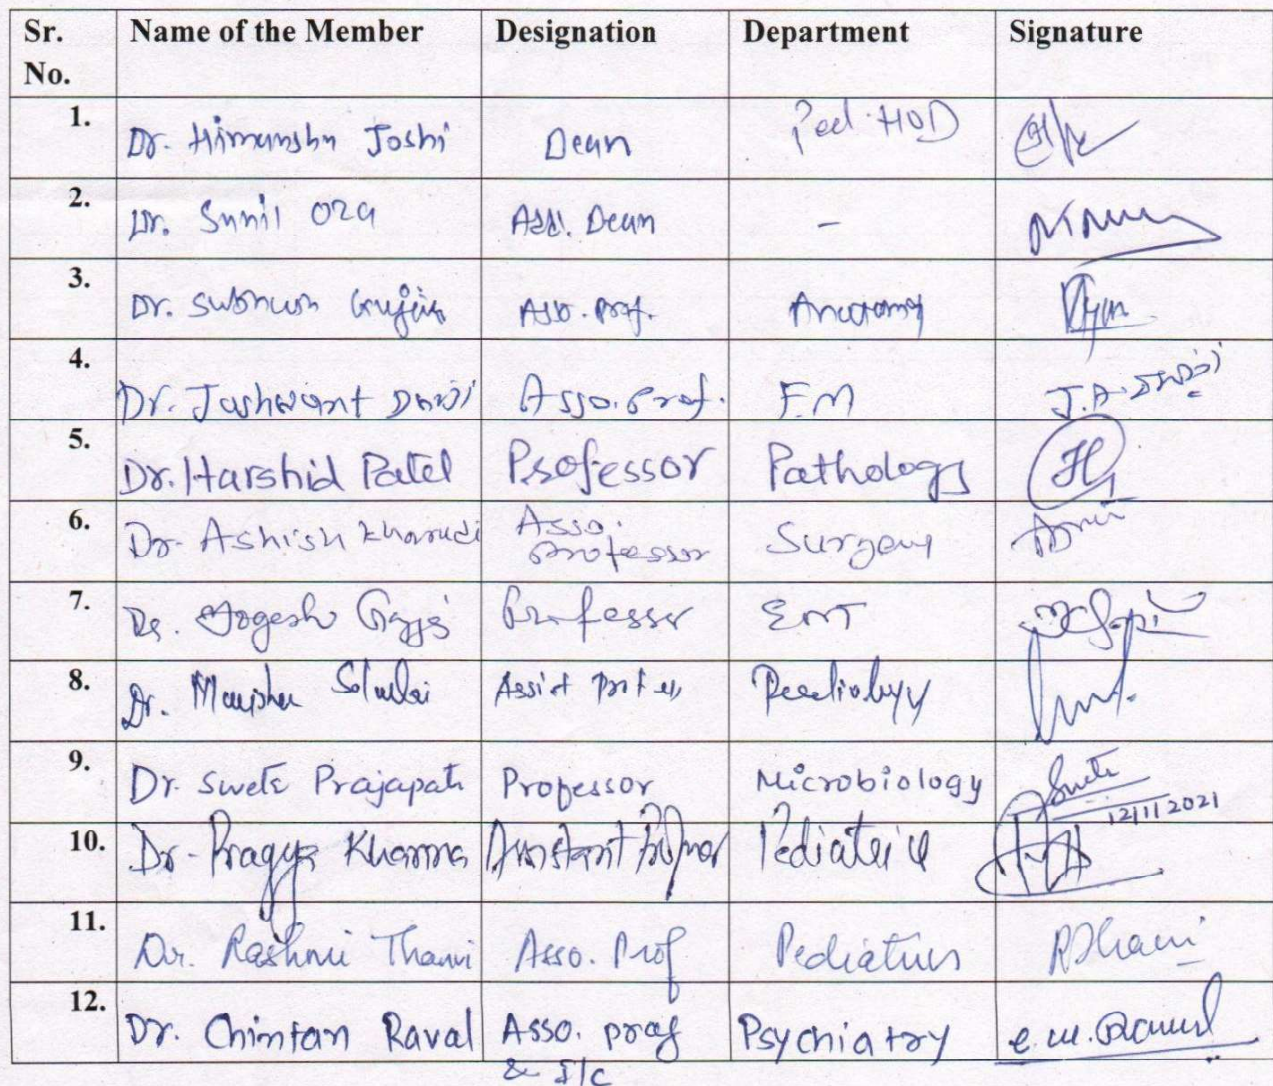 Sr. No. Name of the Member Designation Department Signature
1. Dr. Himanshu Joshi Dean Ped. HOD
2. Dr. Sunil Oza Add. Dean -
3. Dr. Asso. Prof. Anatomy
4. Dr. Jashwant Asso. Prof. F.M
5. Dr. Harshid Patel Professor Pathology
6. Dr. Ashish Kharadi Asso. Professor Surgery
7. Dr. Yogesh Professor ENT
8. Dr. Manisha
9. Dr. Sweta Prajapati Professor Microbiology Sweta 12/11/2021
10. Dr. Pragya Khanna Assistant Pediatrics
11. Dr. Rashmi Asso. Prof Pediatrics
12. Dr. Chintan Raval Asso. prof Psychiatry
& I/C